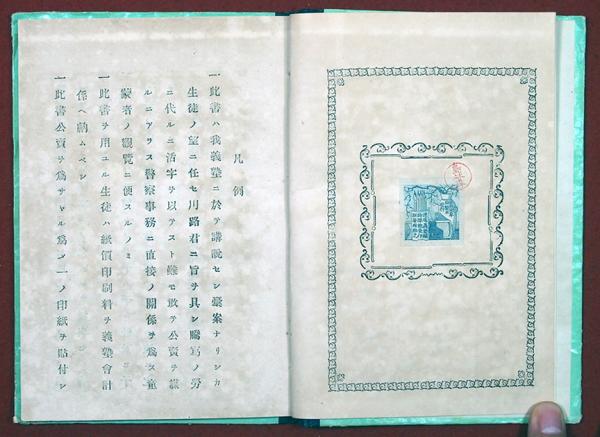 凡例
一此書ハ我義塾ニ於テ講説セシ稾案ナリシカ
生徒ノ望ニ任セ川路君ニ旨ヲ具シ謄寫ノ勞
ニ代ルニ活字ヲ以テスト雖モ敢テ公賣ヲ謀
ルニアラス警察事務ニ直接ノ關係ヲ爲ス童
蒙者ノ觀覽ニ便スルノミ
一此書ヲ用ユル生徒ハ紙價印刷料ヲ義塾會計
係ヘ納ムベシ
一此書公賣ヲ爲サヾル爲メ一ノ印紙ヲ貼付シ